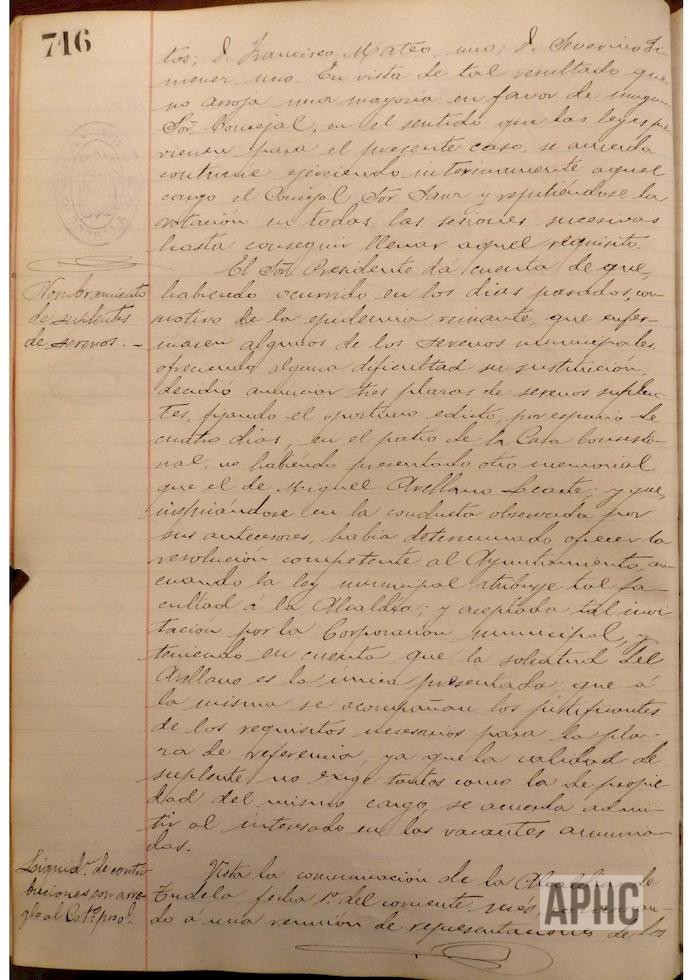 716
tos; D. Francisco Mateo, uno; D. Severino Ji-
menez, uno. En vista de tal resultado que
no arroja una mayoria en favor de ningun
Sor. Concejal, en el sentido que las leyes pre
vienen para el presente caso, se acuerda
continue ejerciendo interinamente aquel
cargo el Concejal Sor. y repitiéndose la
votación en todas las sesiones sucesivas
hasta conseguir llenar aquel requisito.
Nombramiento
de suplentes
de serenos. -
El Sor. Presidente dá cuenta de que,
habiendo ocurrido en los dias pasados, con
motivo de la epidemia reinante, que enfer-
masen algunos de los serenos municipales,
ofreciendo alguna dificultad su sustitución,
decidió anunciar tres plazas de serenos suplen-
tes, fijando el oportuno edicto, por espacio de
cuatro dias, en el patio de la Casa Consisto-
rial, no habiendo presentado otro memorial
que el de Miguel Arellano; y que,
inspirándose en la conducta observada por
sus antecesores, habia determinado ofrecer la
resolución competente al Ayuntamiento, aun
cuando la ley municipal atribuye tal fa-
cultad á la Alcaldía; y aceptada tal invi-
tación por la Corporación municipal, y
teniendo en cuenta que la solicitud del
Arellano es la única presentada; que á
la misma se acompañan los justificantes
de los requisitos necesarios para la pla-
za de referencia, ya que la calidad de
suplente no exige tantos como la de propie
dad del mismo cargo, se acuerda admi-
tir al interesado en las vacantes anuncia-
das.
Liquidn. de contri
buciones, con arre-
glo al Catº.
Vista la comunicación de la Alcaldia de
Tudela fecha 1º. del corriente mes,
do á una reunión de representaciones de los
APHC